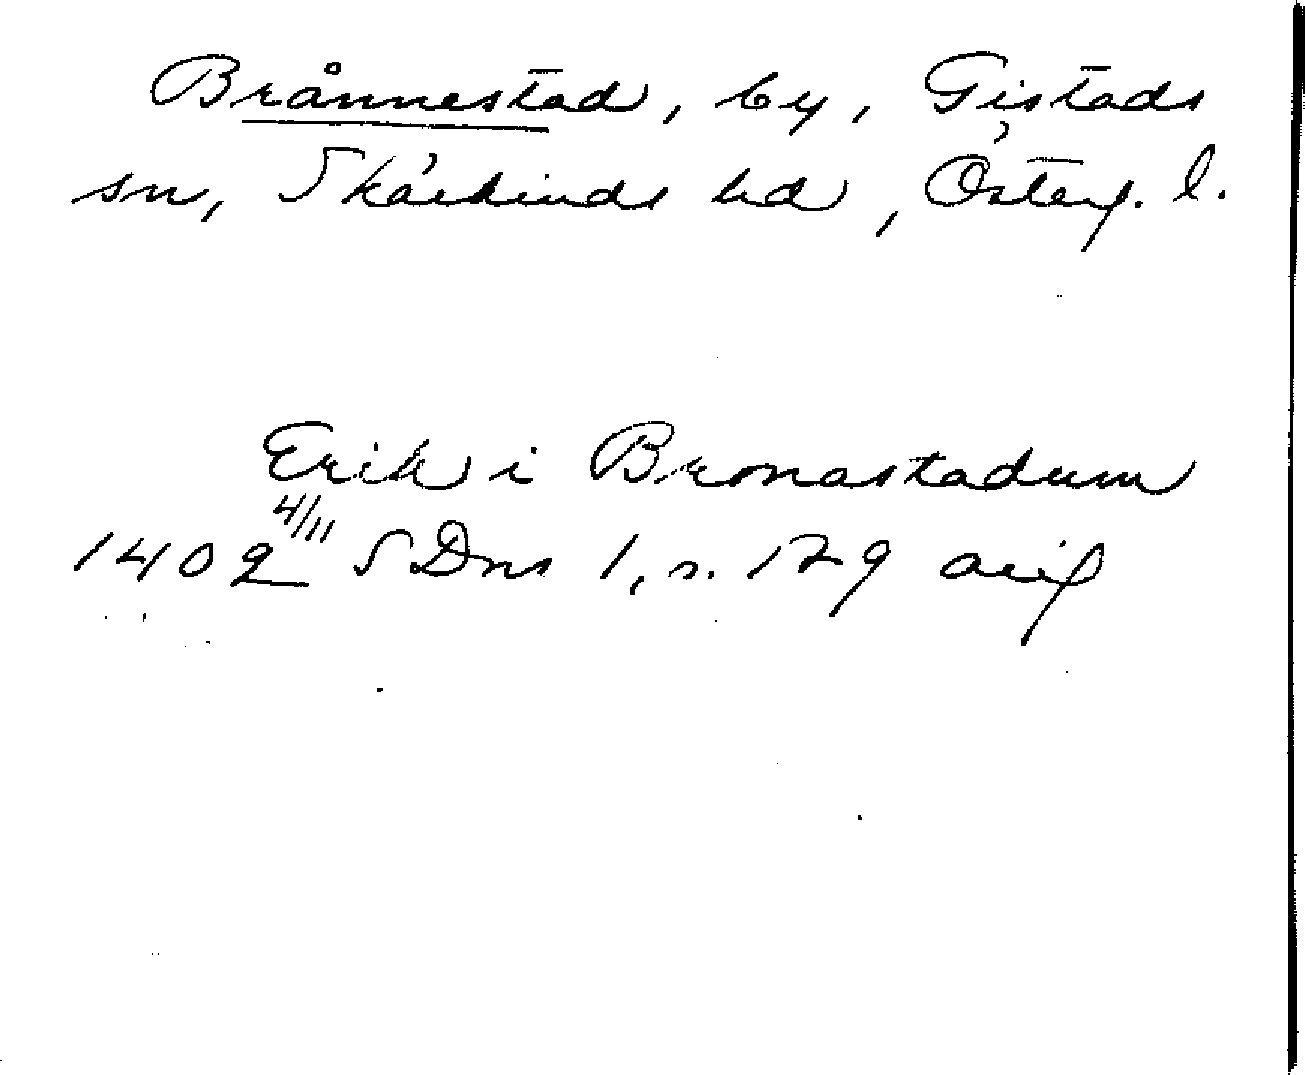 Brånnestad, by, Gistads
sn, Skärkinds hd, Österg. l.
Erik i Bronastadum
1402 4/11 SDns 1, s. 129 orig